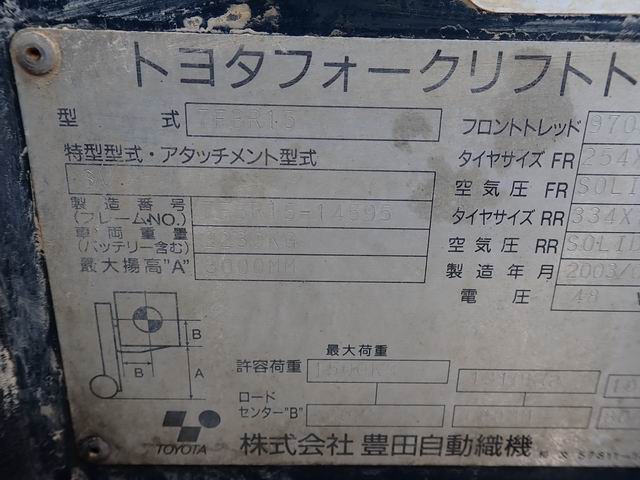 トヨタフォークリフトト
型 式 7FBR15
フロントトレッド 970
特型型式・アタッチメント型式
タイヤサイズ FR 254X
空気圧 FR SOLI
製造番号
(フレームNO.) 7FBR15-14595
タイヤサイズ RR 334X
車両重量
(バッテリー含む)
空気圧 RR SOLI
最大揚高"A" 3000MM
製造年月 2003/
電圧 48 V
B
B
A
最大荷重
許容荷重 1500KG
ロード
センター"B"
TOYOTA 株式会社 豊田自動織機